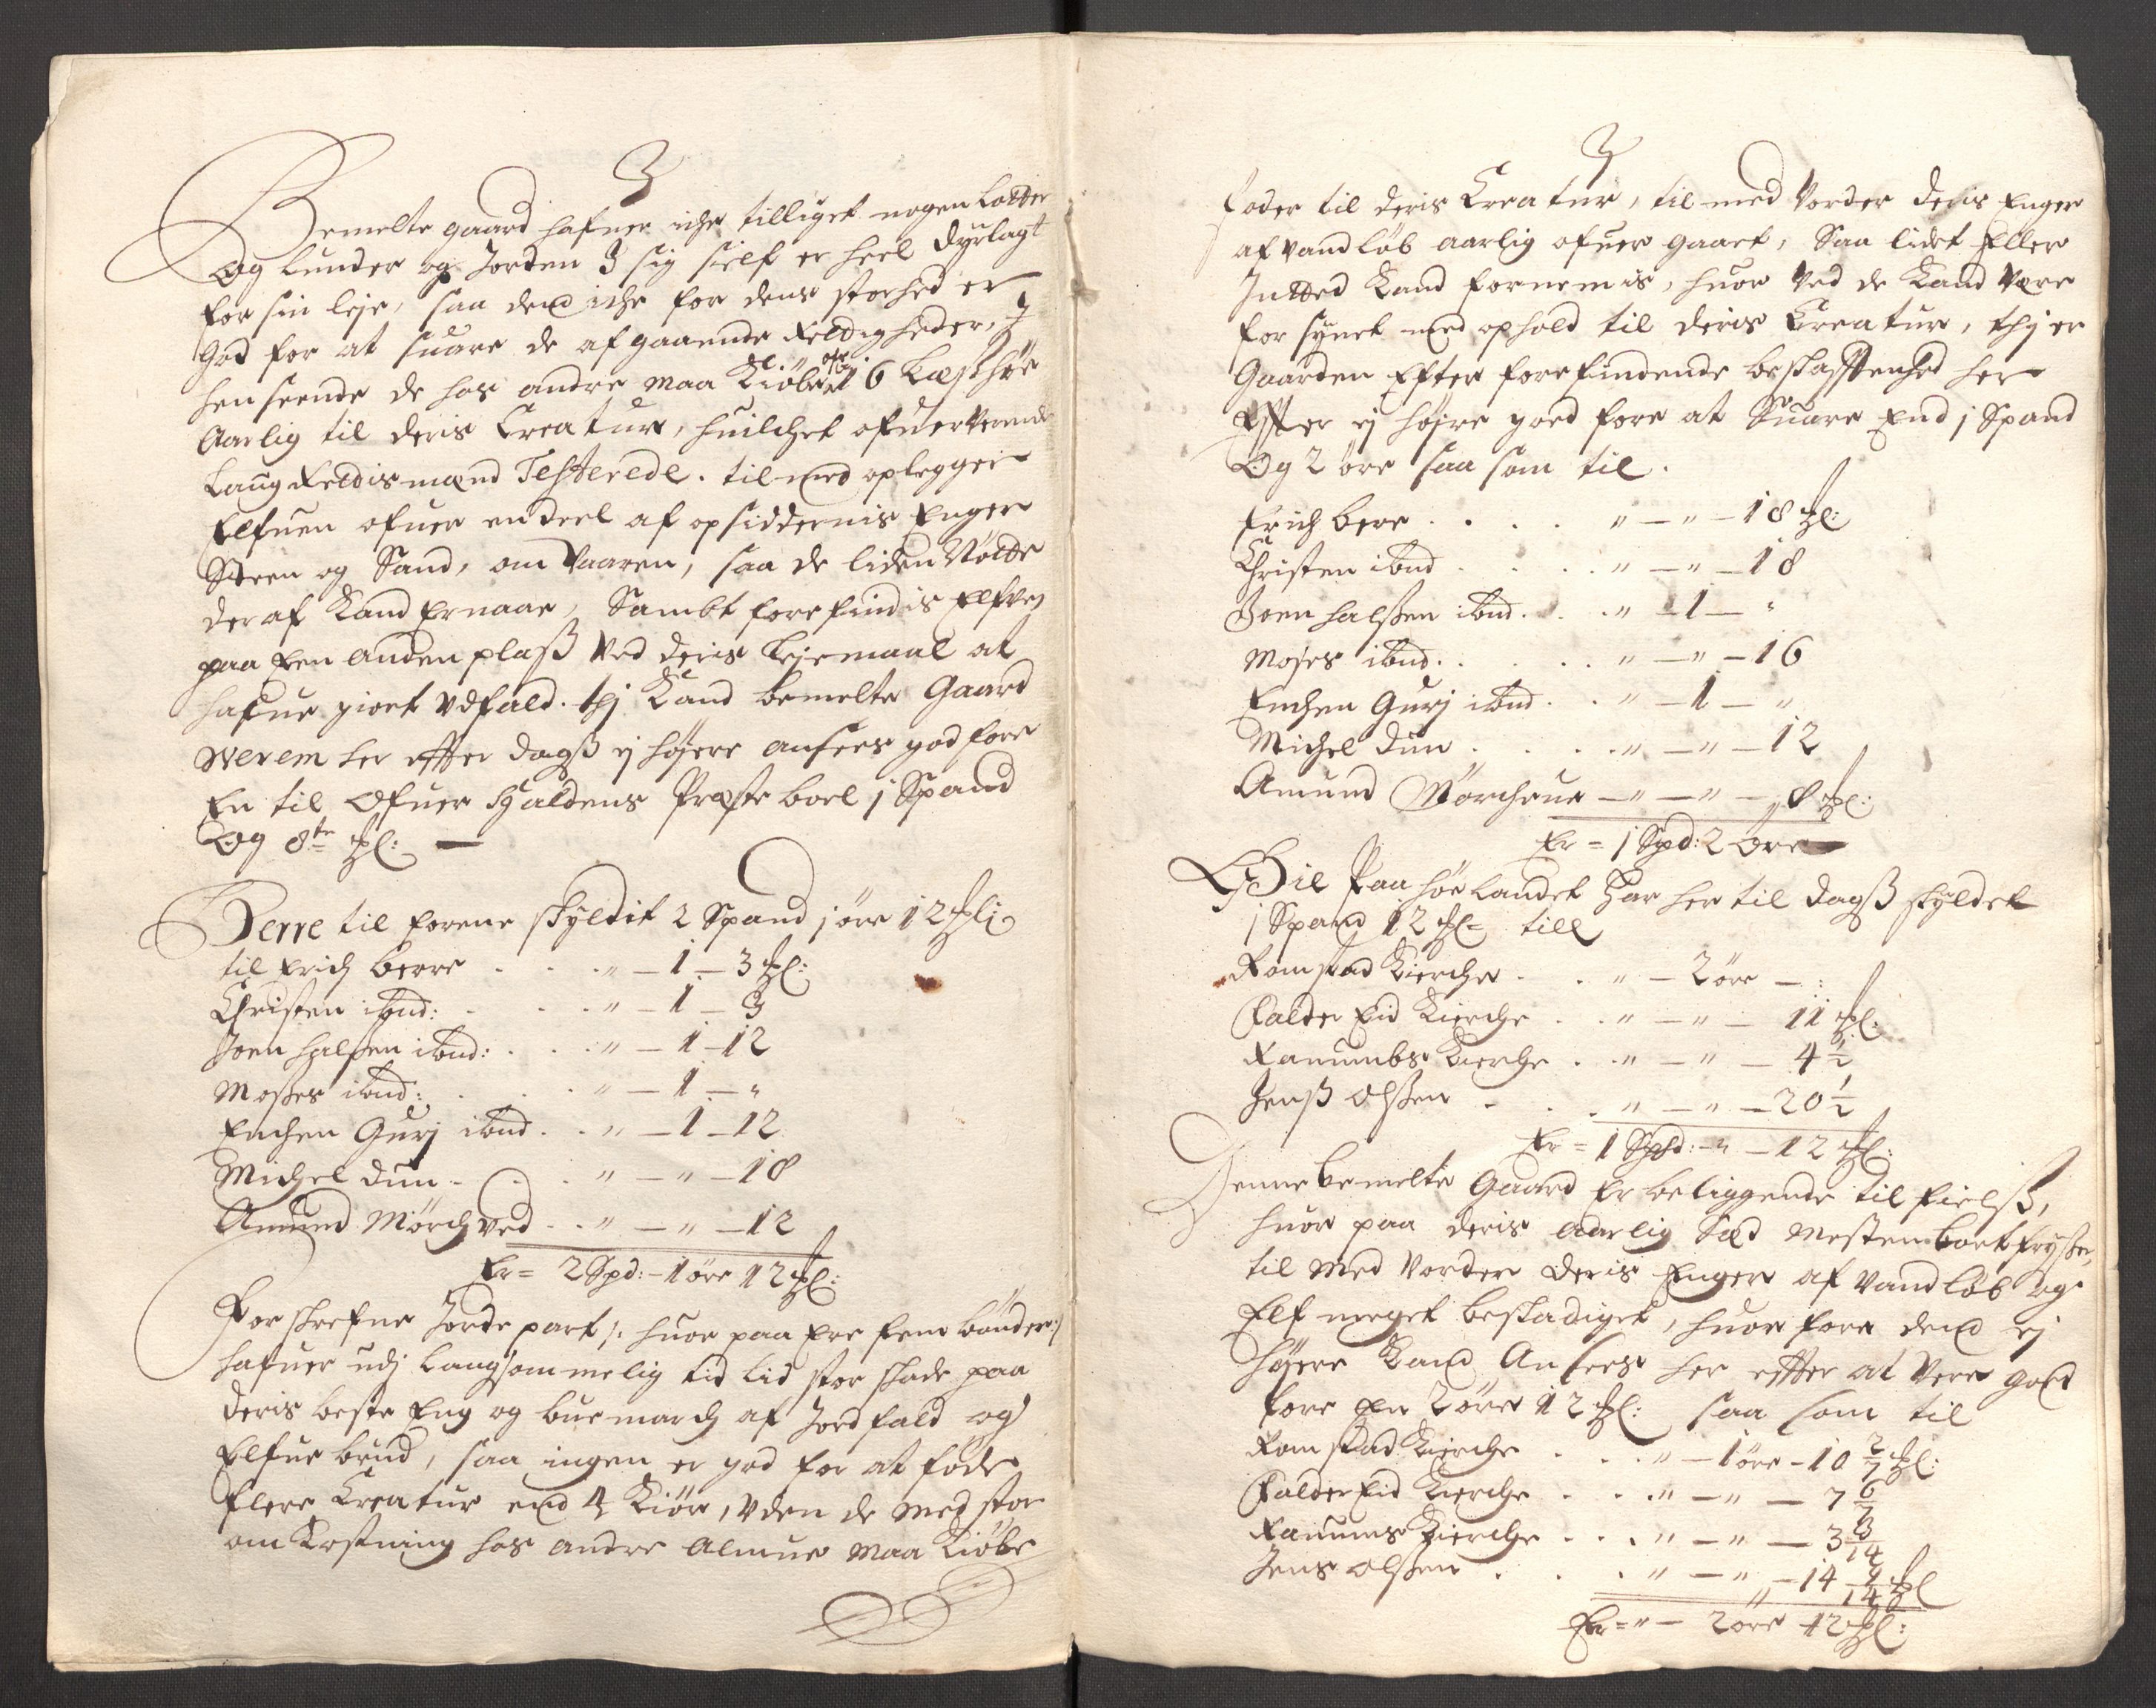 Bemelte gaard hafuer iche tilliget nogen Lotter
Og lunder og Jorden I sig sielf er heel dyrlagt
for sin leje, saa dend iche for dens storhed er
god for at suare de afgaaende Rettigheder, I
henseende de hos andre maa Kiøbe 16 Læshøe
Aarlig til deris Creatur, huilchet ofuerverende
Laug Rettismænd Testerede. til med oplegger
Elfuen ofuer en deel af opsiddernis Enger
Steen og Sand, om Vaaren, saa de liden Nøtte
der af Kand Ernaae, Sambt forefindis Elfvej
paa Een anden plass Ved deris Lejemaal at
hafue giort Udfald. thj Kand bemelte Gaard
Werem her effter dags ej høyere ansees god fore
En til Ofuer Haldens Præste boel j Spand
Og 8te ʒl: —
Berre til forene skyldit 2 Spand j øre 12 ʒl:
til Erich Berre . . . " — 1 — 3 ʒl:
Christen ibnd: . . . " — 1 — 9
Joen halsen ibnd: . . . " — 1 — 12
Moses ibnd: . . . " — 1 — "
Enchen Gurj ibnd . . " — 1 — 12
Michel Dun . . . " — " — 18
Amund Mørchved . . " — " — 12
Er = 2 Spd: — 1 øre 12 ʒl:
Forschrefne Jorde part /: huor paa Ere fem bønder :/
hafuer udj langsommelig tid lid stor skade paa
deris beste Eng og buemarch af Jordfald og
Elfue brud, saa ingen er god for at føde
flere Creatur end 4 Kiør, uden de med stor
om Kostning hos andre Almue maa Kiøbe
foder til deris Creatur, til med Vorder deris Enger
af Vandløb aarlig ofuer gaaet, Saa lidet Eller
Intted Kand fornemis, huor Ved de Kand Vere
for synet med ophold til deris Creatur, thj er
Gaarden Efter forefindende beskaffenhed her
Effter ej højre goed fore at Suare End j Spand
Og 2 øre saa som til.
Erich Bere . . . . " — " — 18 ʒl:
Christen ibnd . . . . " — " — 18
Joen halsen ibnd . . . " — 1 — "
Moses ibnd . . . . " — " — 16
Enchen Gurj ibnd . . " — 1 — "
Michel Dun . . . . " — " — 12
Amund Mørchved — " — " — 8 ʒl:
Er = j Spd: 2 øre
Gil Paa høelandet har her til dags skyldet
j Spand 12 ʒl= till
Romstad Kierche . . " — 2 øre — :
Falder Eid Kierche . . " — " — 11 ʒl:
Ranumbs Kierche . . " — " — 4 1/2
Jenss Olssen . . . " — " — 20 1/2
Er = 1 Spd: — " — 12 ʒl:
Denne bemelte Gaard Er beliggende til fields,
huor paa deris aarlig Sæd mestenbort fryser,
til med Vorder deris Enger af Vandløb og
Elf meget beskadiget, huor fore dend ej
høyere Kand Ansees her effter at Vere goed
fore En 2 øre 12 ʒl: saa som til
Romstad Kierche . . . " — 1 øre — 10 2/7 ʒl:
Falder Eid Kierche . . . " — " — 7 6/7
Ranums Kierche . . . " — " — 3 3/14
Jens Olssen . . . " — " — 14 9/14 ʒl
Er = " — 2 øre 12 ʒl: